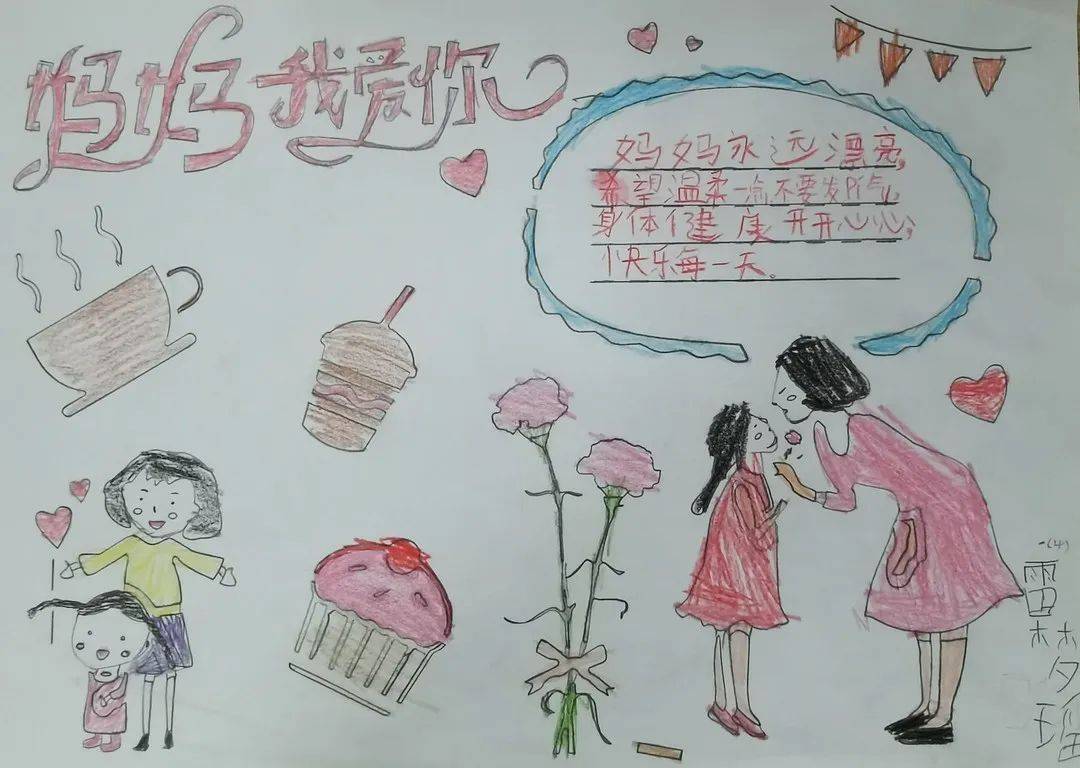 妈妈我爱你
妈妈永远漂亮,
希望温柔一点不要发脾气,
身体健康开开心心,
快乐每一天。
一(4)
雷梦瑶